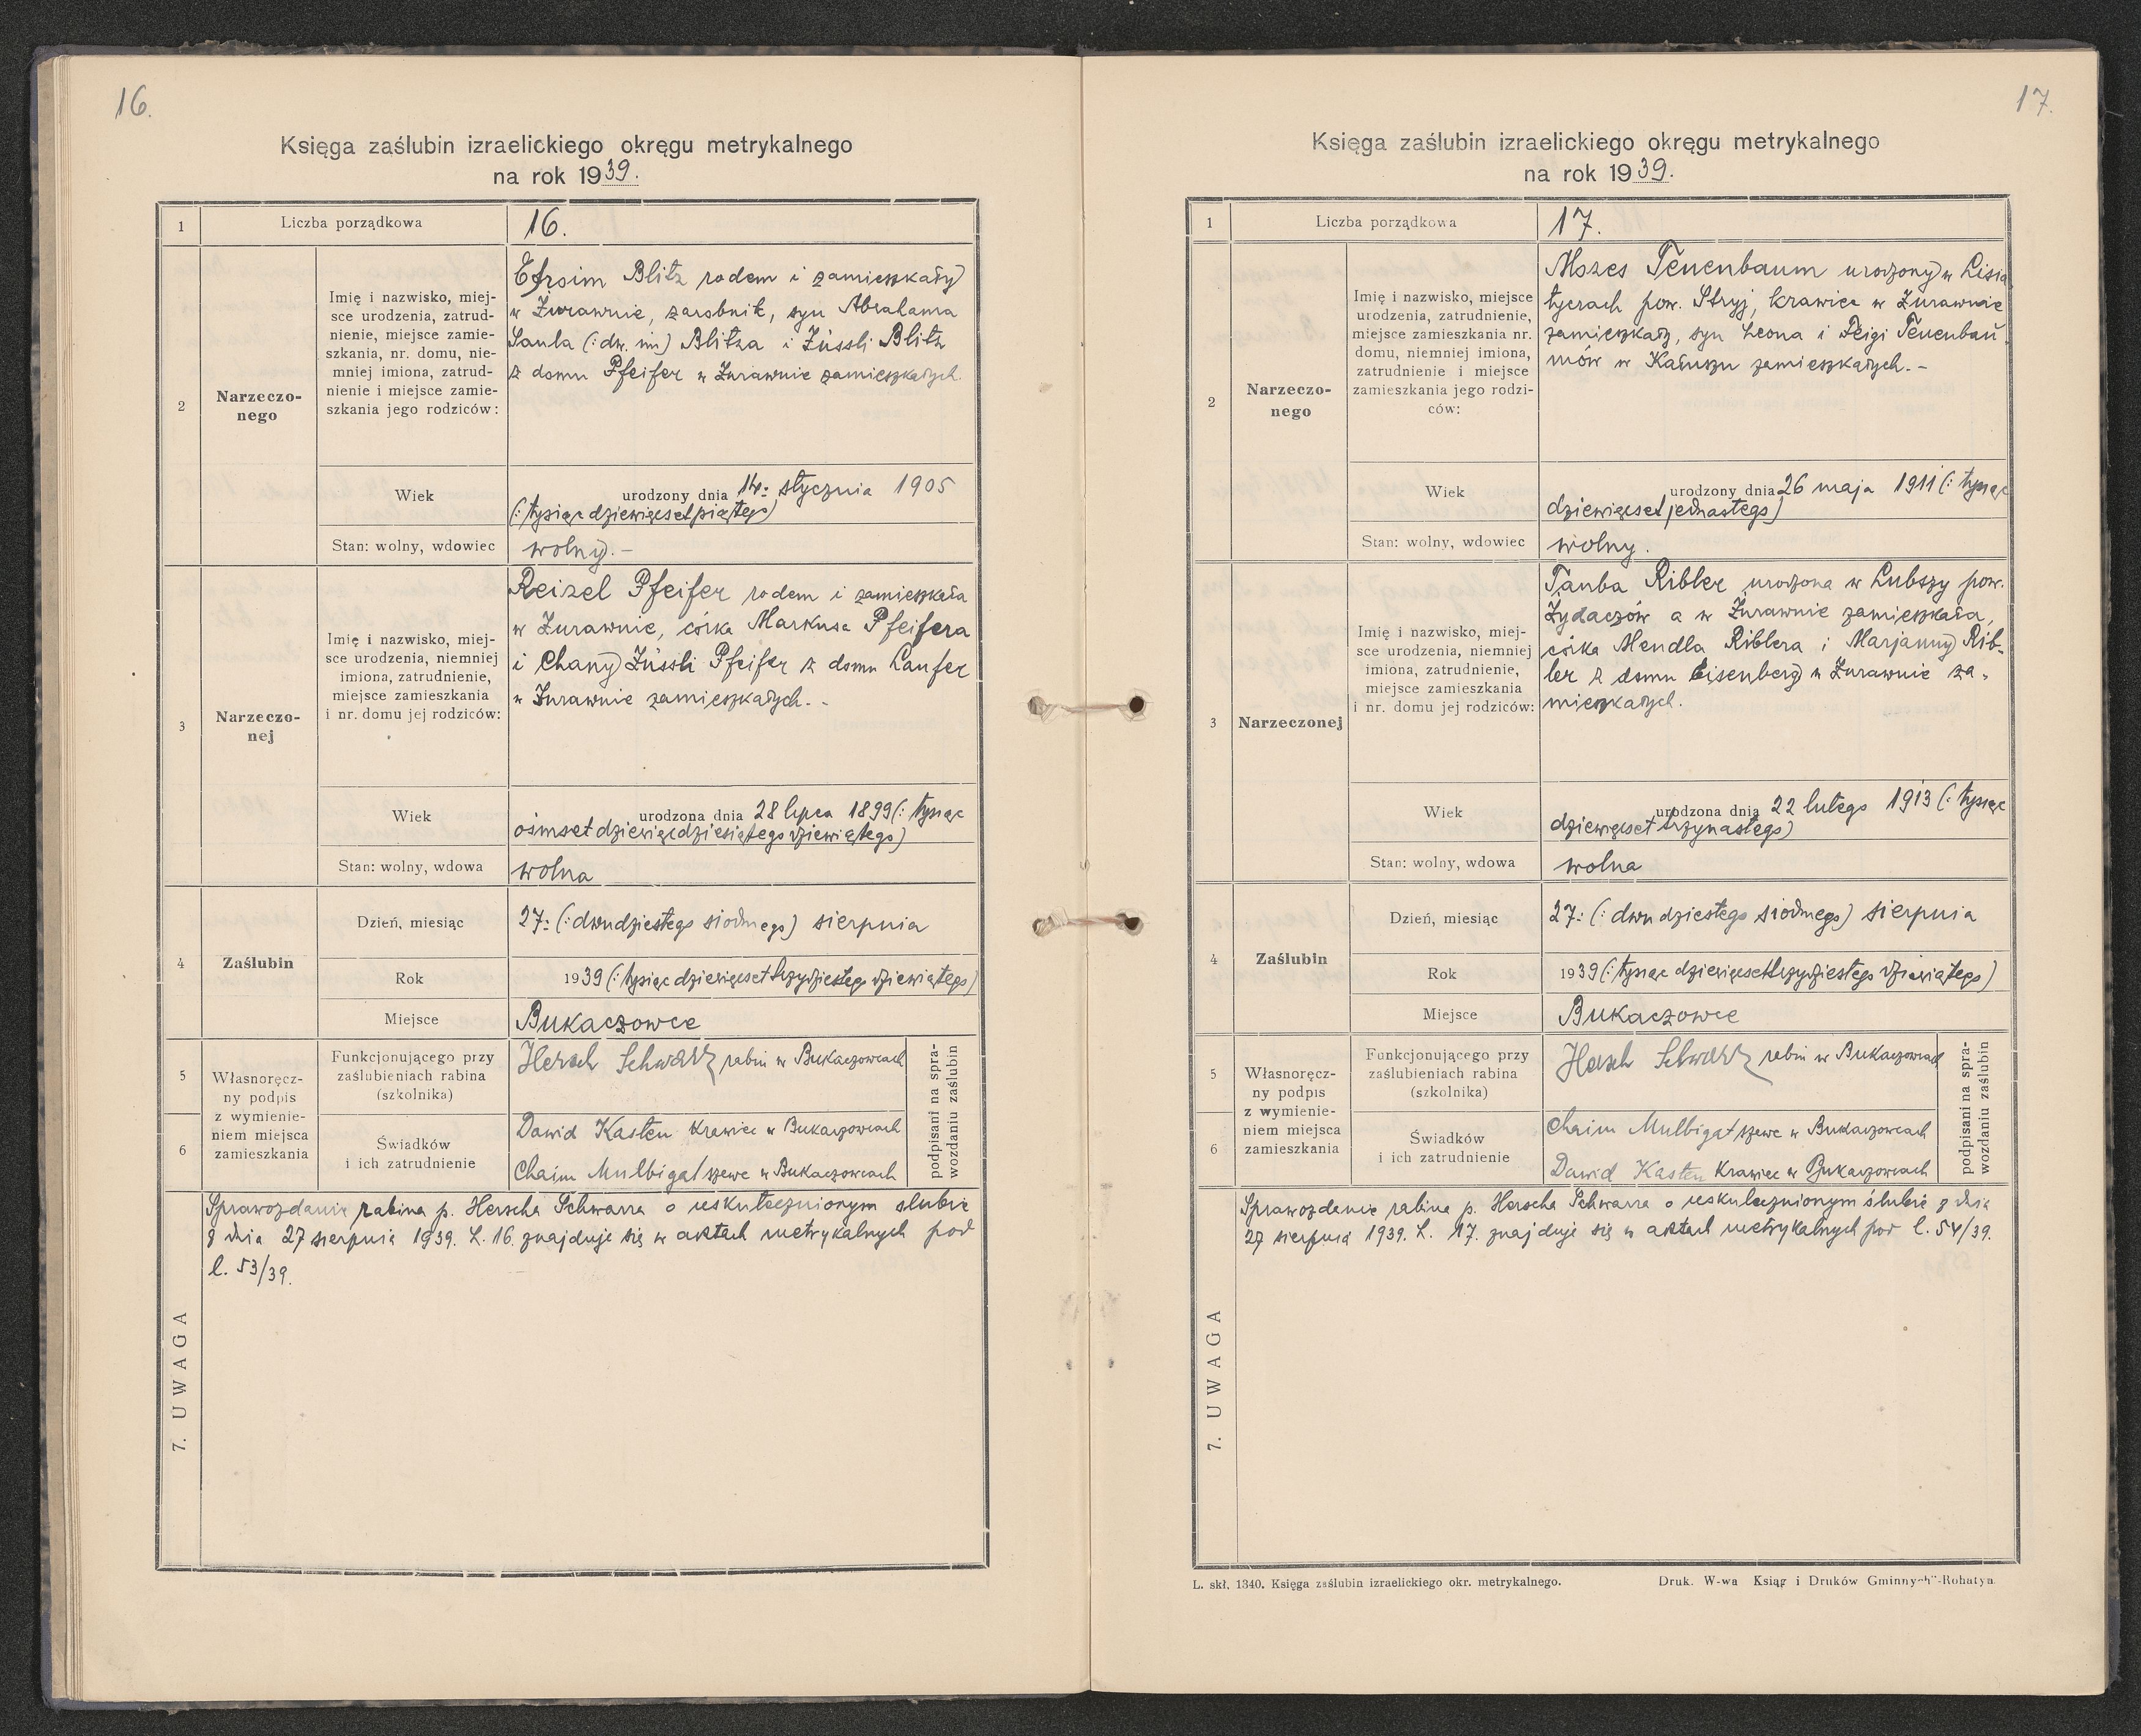 16.
Księga zaślubin izraelickiego okręgu metrykalnego
na rok 1939.
1
Liczba porządkowa
16.
2
Narzeczo-
nego
Imię i nazwisko, miej-
sce urodzenia, zatrud-
nienie, miejsce zamie-
szkania, nr. domu, nie-
mniej imiona, zatrud-
nienie i miejsce zamie-
szkania jego rodziców:
Efroim Blitz rodem i zamieszkały
w Żurawnie, zarobnik, syn Abrahama
Saula (: dw. im) Blitza i Züssli Blitz
z domu Pfeifer w Żurawnie zamieszkałych.
Wiek
urodzony dnia 14: stycznia 1905
(: tysiąc dziewięcset piątego)
Stan: wolny, wdowiec
wolny. –
3
Narzeczo-
nej
Imię i nazwisko, miej-
sce urodzenia, niemniej
imiona, zatrudnienie,
miejsce zamieszkania
i nr. domu jej rodziców:
Reizel Pfeifer rodem i zamieszkała
w Żurawnie, córka Markusa Pfeifera
i Chany Züssli Pfeifer z domu Laufer
w Żurawnie zamieszkałych. -
Wiek
urodzona dnia 28 lipca 1899 (: tysiąc
ośmset dziewięćdziesiątego dziewiątego)
Stan: wolny, wdowa
wolna
4
Zaślubin
Dzień, miesiąc
27: (: dwudziestego siódmego) sierpnia
Rok
1939 (: tysiąc dziewięcset trzydziestego dziewiątego)
Miejsce
Bukaczowce
5
6
Własnoręcz-
ny podpis
z wymienie-
niem miejsca
zamieszkania
Funkcjonującego przy
zaślubieniach rabina
(szkolnika)
Hersch Schwarz rabin w Bukaczowcach
Świadków
i ich zatrudnienie
Dawid Kasten krawiec w Bukaczowcach
Chaim Mulbigat szewc w Bukaczowcach
podpisani na spra-
wozdaniu zaślubin
7. UWAGA
Sprawozdanie rabina p. Herscha Schwarza o uskutecznionym slubie
z dnia 27 sierpnia 1939. L. 16. znajduje się w aktach metrykalnych pod
l. 53/39.
17.
Księga zaślubin izraelickiego okręgu metrykalnego
na rok 1939.
1
Liczba porządkowa
17.
2
Narzeczo-
nego
Imię i nazwisko, miejsce
urodzenia, zatrudnienie,
miejsce zamieszkania nr.
domu, niemniej imiona,
zatrudnienie i miejsce
zamieszkania jego rodzi-
ców:
Mozes Tenenbaum urodzony w Lisia
tyczach pow. Stryj, krawiec w Żurawnie
zamieszkały, syn Leona i Feigi Tenenbau
mów w Kałuszu zamieszkałych. -
Wiek
urodzony dnia 26 maja 1911 (: tysiąc
dziewięcset jednastego)
Stan: wolny, wdowiec
wolny.
3
Narzeczonej
Imię i nazwisko, miej-
sce urodzenia, niemniej
imiona, zatrudnienie,
miejsce zamieszkania
i nr. domu jej rodziców:
Tauba Ribler urodzona w Lubszy pow.
Żydaczów a w Żurawnie zamieszkała,
córka Mendla Riblera i Marjanny Rib-
ler z domu Eisenberg w Żurawnie za-
mieszkałych.
Wiek
urodzona dnia 22 lutego 1913 (: tysiąc
dziewięcset trzynastego)
Stan: wolny, wdowa
wolna
4
Zaślubin
Dzień, miesiąc
27: (: dwudziestego siódmego) sierpnia
Rok
1939 (: tysiąc dziewięcset trzydziestego dziewiątego)
Miejsce
Bukaczowce
5
6
Własnoręcz-
ny podpis
z wymienie-
niem miejsca
zamieszkania
Funkcjonującego przy
zaślubieniach rabina
(szkolnika)
Hersch Schwarz rabin w Bukaczowcach
Świadków
i ich zatrudnienie
Chaim Mulbigat szewc w Bukaczowcach
Dawid Kasten krawiec w Bukaczowcach
podpisani na spra-
wozdaniu zaślubin
7. UWAGA
Sprawozdanie rabina p. Herscha Schwarza o uskutecznionym ślubie z dnia
27 sierpnia 1939. L. 17. znajduje się w aktach metrykalnych pod l. 54/39.
L. skł. 1340. Księga zaślubin izraelickiego okr. metrykalnego.
Druk. W-wa Ksiąg i Druków Gminnych"-Rohatyn.